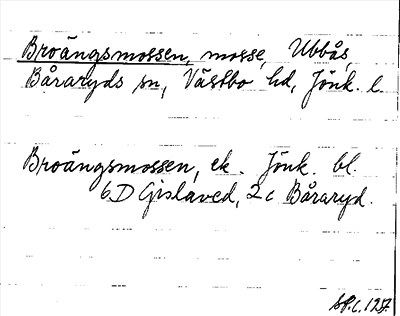 Broängsmossen, mosse, Ubbås,
Båraryds sn, Västbo hd, Jönk. l.
Broängsmossen, ek. Jönk. bl.
6D Gislaved, 2c Båraryd.